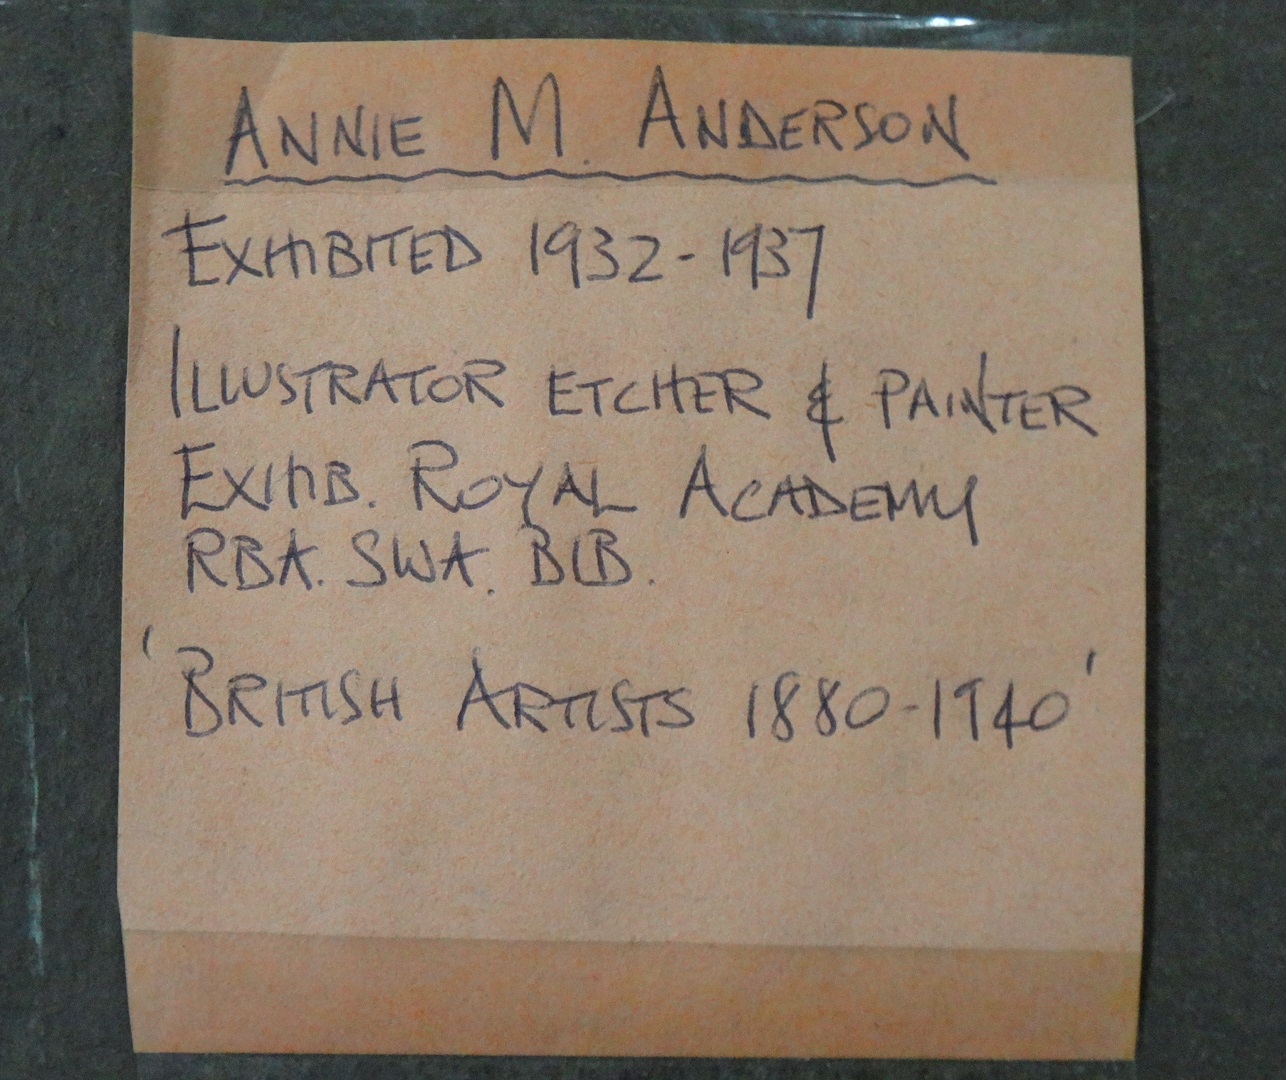 ANNIE M. ANDERSON
EXHIBITED 1932-1937
ILLUSTRATOR ETCHER & PAINTER
EXHIB. ROYAL ACADEMY
RBA. SWA. BIB.
'BRITISH ARTISTS 1880-1940'